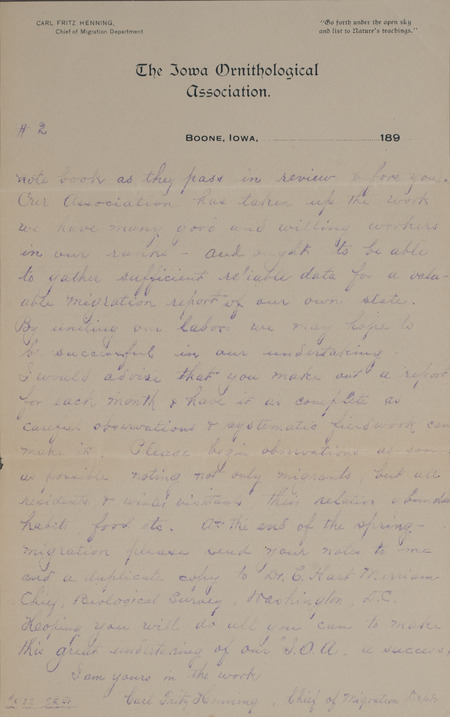 CARL FRITZ HENNING,
Chief of Migration Department
"Go forth under the open sky
and list to Nature's teachings."
The Iowa Ornithological
Association.
# 2
BOONE, IOWA, 189
note book as they pass in review before you.
Our Association has taken up the work
we have many good and willing workers
in our ranks - and ought to be able
to gather sufficient reliable data for a valu-
able migration report of our own state.
By uniting our labors we may hope to
be successful in our undertaking.
I would advise that you make out a report
for each month & have it as complete as
careful observations & systematic fieldwork can
make it. Please begin observations as soon
as possible noting not only migrants, but all
residents & winter visitants their relative abundance
habit, food etc. At the end of the spring-
migration please send your notes to me
and a duplicate copy to Dr. C. Hart Merriam
Chief, Biological Survey, Washington, D.C.
Hoping you will do all you can to make
this great undertaking of our "I.O.A. a success
I am yours in the work
Carl Fritz Henning, Chief of Migration Dept.